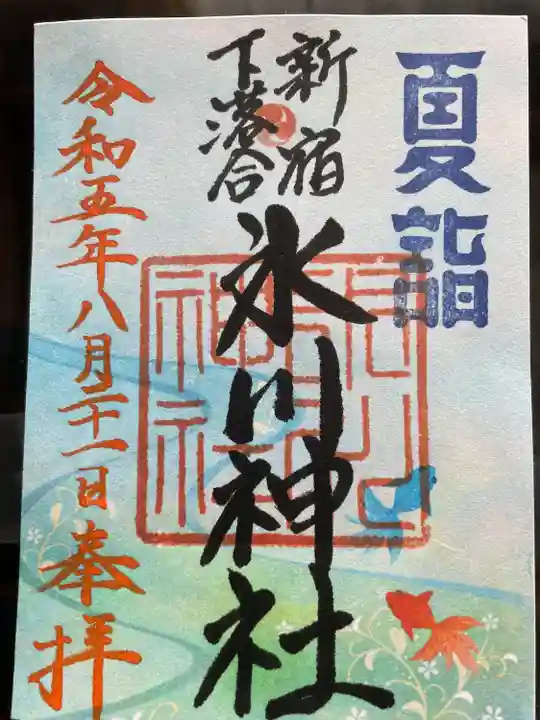 夏詣
新宿
下落合
氷川神社
令和五年八月二十一日奉拝